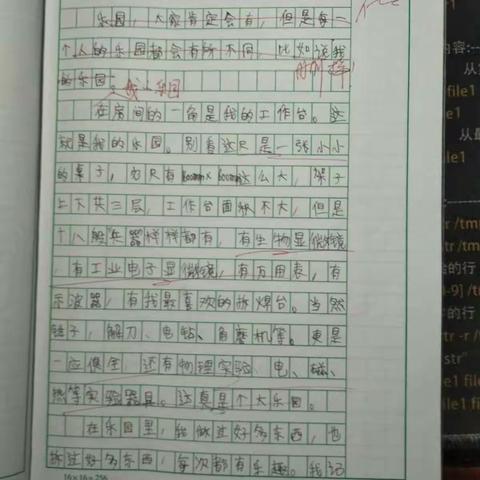 乐园，大家肯定会有，但是每一
个人的乐园都会有所不同，比如说我
的乐园。
我的乐园
在房间的一角是我的工作台。这
就是我的乐园。别看这只是一张小小
的桌子，为只有600mm×600mm这么大，架子
上下共三层，工作台面积不大，但是
十八般兵器样样都有，有生物显微镜
，有工业电子显微镜，有万用表，有
示波器，有我最喜欢的拆焊台。当然
锤子，解刀、电钻、角磨机等。更是
一应俱全，还有物理实验、电、磁、
热等实验器具。这真是个大乐园。
在乐园里，我做过好多东西，也
拆过好多东西，每次都有乐趣。我记
16×16=256
内容:
file1
file1
从最
file1
tr /tmp
tr /tm
的行
-9] /tm
的行
str -r /
str"
file1
file1 f